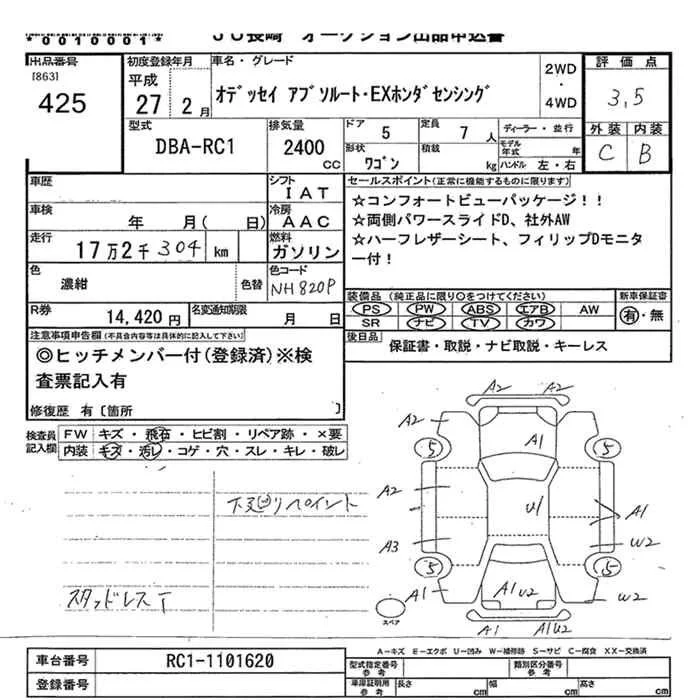 *0010001*
JU長崎 オークション出品申込書
出品番号
[863]
425
初度登録年月
平成
27 2月
車名・グレード
オデッセイ アブソルート・EXホンダセンシング
2WD
・
4WD
評価点
3,5
外装 内装
C B
型式
DBA-RC1
排気量
2400
cc
ドア 5
形状
ワゴン
定員 7 人
積載 kg
ディーラー・並行
モデル年式 年
ハンドル 左・右
車歴
シフト
IAT
車検 年 月( 日)
冷房
AAC
走行
17万2千304 km
燃料
ガソリン
色
濃紺
色替
色コード
NH820P
R券
14,420円
名変通知期限
月 日
セールスポイント(正常に機能するものに限ります)
☆コンフォートビューパッケージ！！
☆両側パワースライドD、社外AW
☆ハーフレザーシート、フィリップDモニタ
ー付！
装備品 (純正品に限り○をつけてください)
PS PW ABS エアB AW
SR ナビ TV カワ
新車保証書
有・無
後日品
保証書・取説・ナビ取説・キーレス
注意事項申告欄(不具合内容等は具体的に記入して下さい)
◎ヒッチメンバー付(登録済)※検
査票記入有
修復歴 有〔箇所 〕
検査員
記入欄
FW キズ・飛石・ヒビ割・リペア跡・×要
内装 キズ・汚レ・コゲ・穴・スレ・キレ・破レ
下廻りペイント
スタッドレスT
A2 A2
A2
A1
5 5
A2
U1
A1
A3
W2
5 5
A1
A1 U2
W2
スペア
A1 A1U2
A-キズ E-エクボ U-凹み W-補修跡 S-サビ C-腐食 XX-交換済
車台番号
RC1-1101620
登録番号
型式指定番号
参考
類別区分番号
参考
車庫証明用
参考
長さ cm
幅 cm
高さ cm